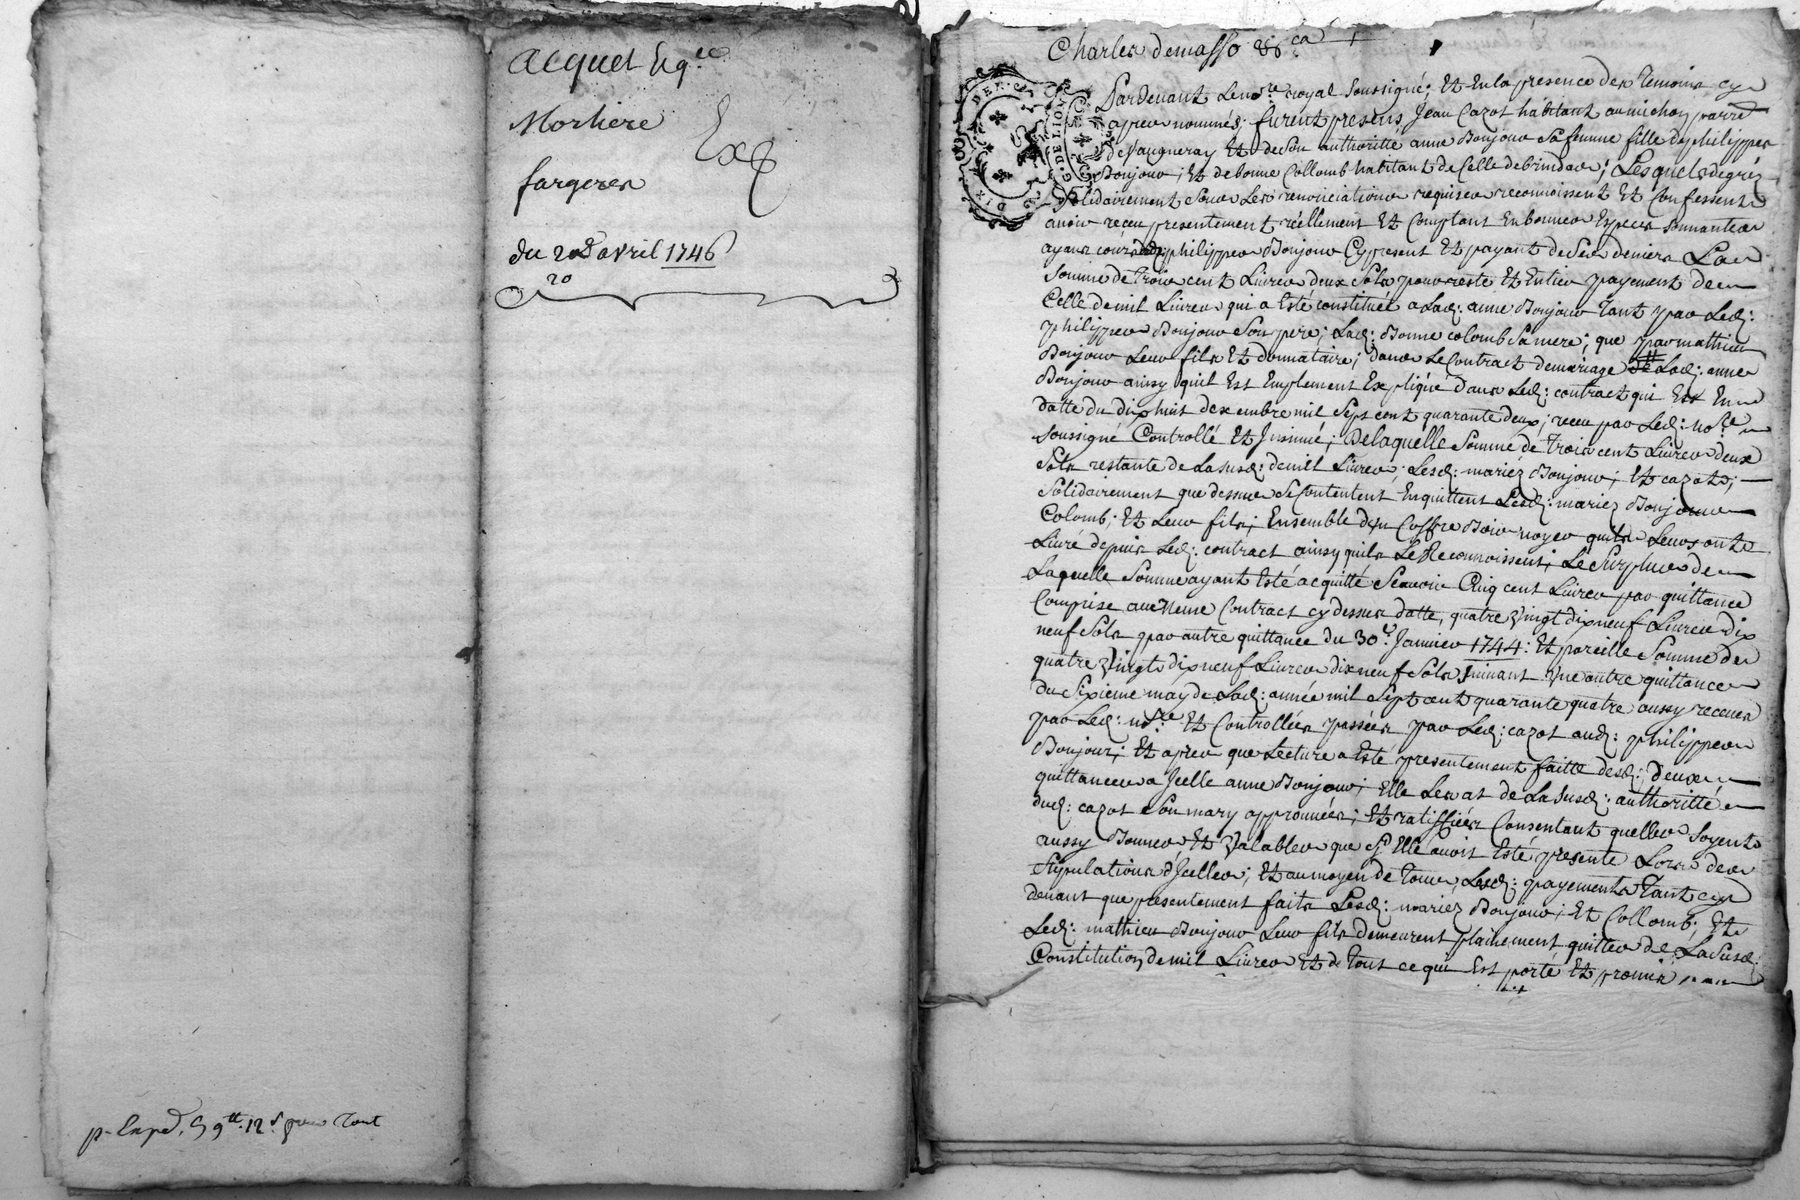 acquet
Morliere
Exp
fargeres
du 20 avril 1746
20
p. Exped. 9 12 pour tout
Charles demasso
DIX DEN. G. DE LION
Pardevant Le no.re royal soussigné; Et En la presence des Temoins cy
apres nommés; furent presens Jean Cazot habitant au michon parre
de Vaugneray Et de son authoritté anne Bonjour sa femme fille de philippes
Bonjour; Et de bonne Collomb habitant de Celle de brindas; Lesquels de grez
solidairement sous Les renonciations requises reconnoissent Et Confessent
avoir receu presentement réellement Et Comptant En bonnes Especes sonnantes
ayans cours philippes Bonjour Cy present Et payant de ses deniers La
somme de trois cent Livres deux sols pour reste Et Entier payement de
Celle de mil Livres qui a Esté constituée a Lad: anne Bonjour tant par Led:
philippes Bonjour son pere; Lad: Bonne colomb sa mere; que par mathieu
Bonjour Leur fils Et donnataire; dans Le Contract de mariage de Lad: anne
Bonjour ainsy quil Est Emplement Expliqué dans Led: contract qui Est En
datte du dix huit dexembre mil sept cent quarante deux; receu par Led: no.re
soussigné Controllé Et Jnsinué; De laquelle somme de trois cent Livres deux
sols restante de La susd: de mil Livres, Lesd: mariez Bonjour; Et cazot;
solidairement que dessus se Contentent En quittent Lesd: mariez Bonjour
Colomb; Et Leur fils; Ensemble dun Coffre Bois noyer quils Leurs ont
Livré depuis Led: contract ainsy quils Le Reconnoissent; Le surplus de
Laquelle somme ayant Esté acquitté scavoir Cinq cent Livres par quittance
Comprise au meme Contract cy dessus datte, quatre vingt dix neuf Livres dix
neuf sols par autre quittance du 30e Janvier 1744: Et pareille somme de
quatre vingt dix neuf Livres dix neuf sols suivant Une autre quittance
du sixieme may de Lad: année mil sept cent quarante quatre aussy receues
par Led: no.re Et Controllées passées par Led: cazot aud: philippes
Bonjour; Et apres que Lecture a Esté presentement faitte desd: deux
quittances a Jcelle anne Bonjour; Elle Les at de La susd: authoritté
dud: cazot son mary approuvées; Et ratiffiées Consentant quelles soyent
aussy Bonnes Et Valables que sy Elle avoit Esté presente Lors des
stipulations dJcelles; Et au moyen de tous Lesd: payements tant cy
devant que presentement faits Lesd: mariez Bonjour; Et Collomb; Et
Led: mathieu Bonjour Leur fils demeurent plainement quittes de La susd:
Constitution de mil Livres Et de tout ce qui Est porté Et promis